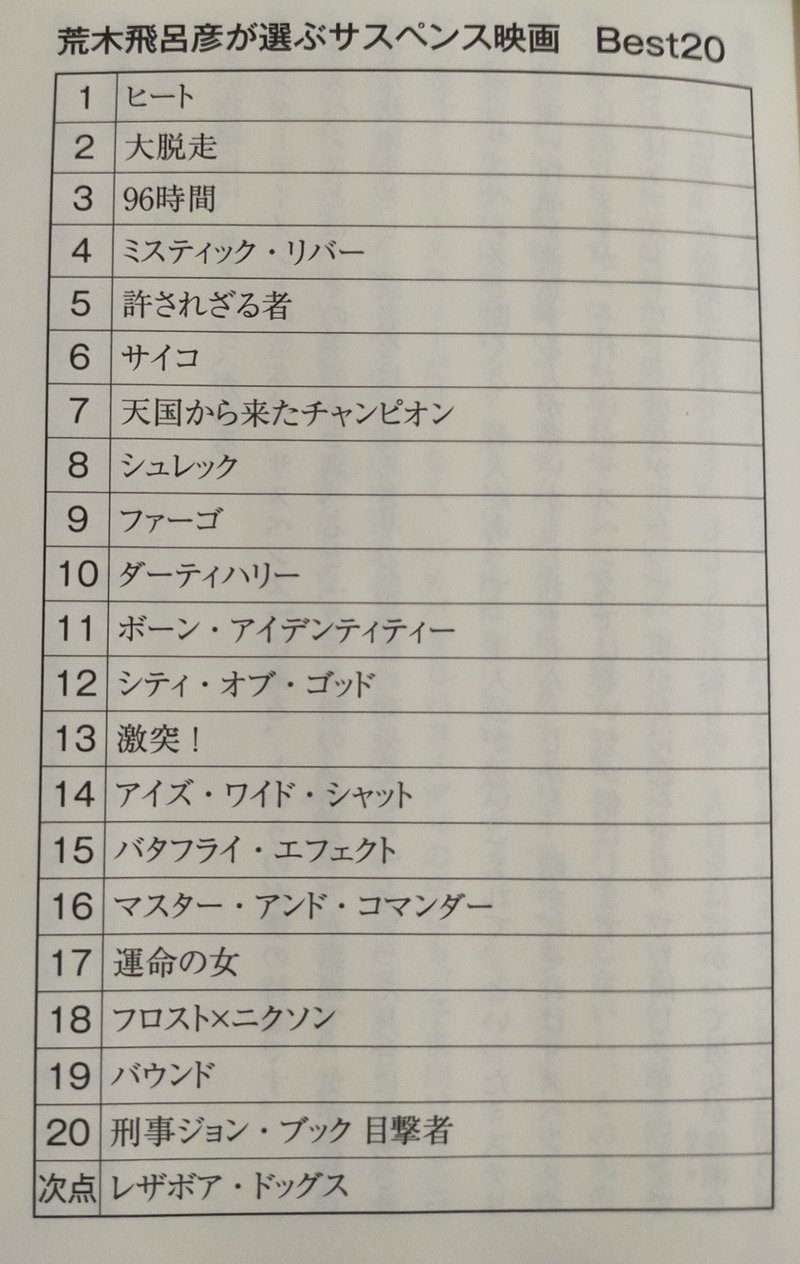 荒木飛呂彦が選ぶサスペンス映画 Best20
1 ヒート
2 大脱走
3 96時間
4 ミスティック・リバー
5 許されざる者
6 サイコ
7 天国から来たチャンピオン
8 シュレック
9 ファーゴ
10 ダーティハリー
11 ボーン・アイデンティティー
12 シティ・オブ・ゴッド
13 激突！
14 アイズ・ワイド・シャット
15 バタフライ・エフェクト
16 マスター・アンド・コマンダー
17 運命の女
18 フロスト×ニクソン
19 バウンド
20 刑事ジョン・ブック 目撃者
次点 レザボア・ドッグス